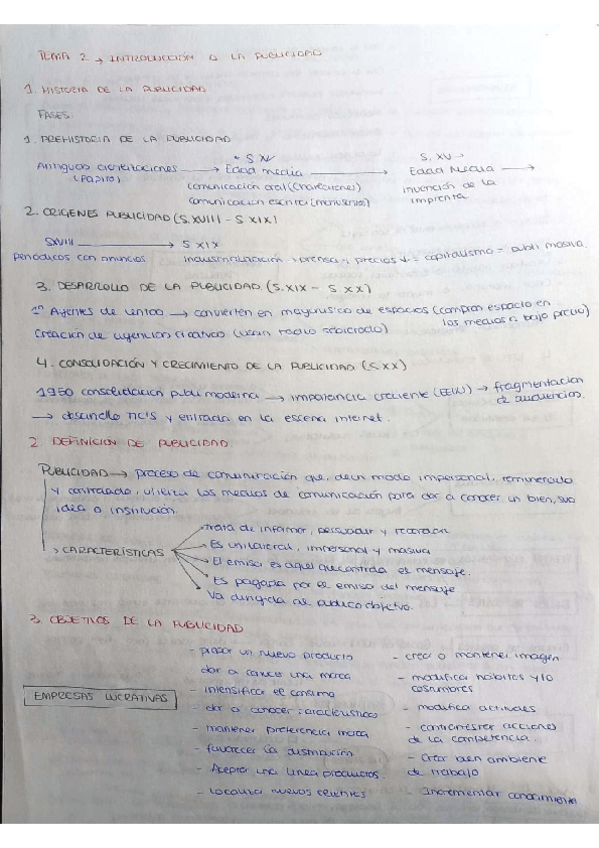 TEMA 2 → INTRODUCCIÓN A LA PUBLICIDAD
1. HISTORIA DE LA PUBLICIDAD
FASES:
1. PREHISTORIA DE LA PUBLICIDAD
Antiguas civilizaciones → Edad media → Edad Media →
(Papiro)
S. XV →
comunicación oral (charlatanes)
comunicación escrita (manuscritos)
invención de la
imprenta
2. ORIGENES PUBLICIDAD (S. XVIII - S XIX)
SXVIII → S XIX
periodicos con anuncios industrialización, prensa, precios ↓ = capitalismo = publi masiva.
3. DESARROLLO DE LA PUBLICIDAD (S. XIX - S. XX)
1º Agentes de → convierten en mayoristas de espacios (compran espacio en
los medios a bajo precio)
Creación de agencias creativas
4. CONSOLIDACIÓN Y CRECIMIENTO DE LA PUBLICIDAD (S. XX)
1950 consolidación publi moderna → importancia creciente (EEUU) → fragmentación
de audiencias.
→ desarrollo TIC'S y entrada en la escena internet.
2 DEFINICIÓN DE PUBLICIDAD
PUBLICIDAD → proceso de comunicación que, de un modo impersonal, remunerado
y controlado, utiliza los medios de comunicación para dar a conocer un bien,
idea o institución.
→ CARACTERÍSTICAS
trata de informar, persuadir y recordar
Es unilateral, impersonal y masiva
El emisor es aquel que controla el mensaje.
Es pagada por el emisor del mensaje
Va dirigida al publico objetivo.
3. OBJETIVOS DE LA PUBLICIDAD
EMPRESAS LUCRATIVAS
- probar un nuevo producto
dar a conocer una marca
- intensificar el consumo
- dar a conocer características
- mantener preferencia marca
- favorecer la distribución
- Aceptar una linea productos.
- Localizar nuevos clientes
- crear o mantener imagen
- modificar habitos y/o
costumbres
- modificar actitudes
- contrarrestar acciones
de la competencia.
- Crear buen ambiente
de trabajo
- Incrementar conocimiento